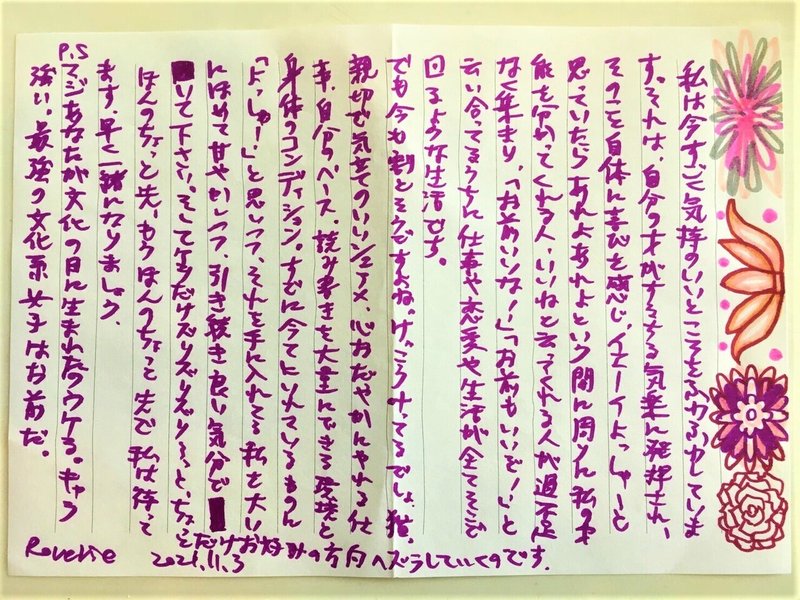 私は今すごく気持のいいところをふわふわしていま
す。それは、自分の才がするする気楽に発揮され、
そのこと自体に喜びを感じ、イエーイよっしゃーと
思っていたらあれよあれよという間に周りに私の才
能を分かってくれる人、いいねと云ってくれる人が過不足
なく集まり、「お前いいな!」「お前もいいぞ!」と
云い合ってるうちに仕事や恋愛や生活が全てそこで
回るような生活です。
でも今も割とそうですよね。けっこう てるでしょ、猫、
親切で気立てのいいシェアメ、心おだやかにやれる仕
事、自分のペース。読み書きを大量にできる環境と
身体のコンディション。すでに今てにいれているもん
「よっしゃー!」と思しって、それを手に入れてる私を大い
にほめて甘やかしつつ、引き続き良い気分で
いて下さい。そして 少だけズリズリズリ〜っと、ちょっと
だけお好みの方向へズラしていくのです。
ほんのちょっと先、もうほんのちょっと先で私は待って
ます。早く一緒になりましょう。
P.S マジあなたが文化の日に生まれたのウケる。キャラ
強い。最強の文化系女子はお前だ。
2021.11.3
Reverie